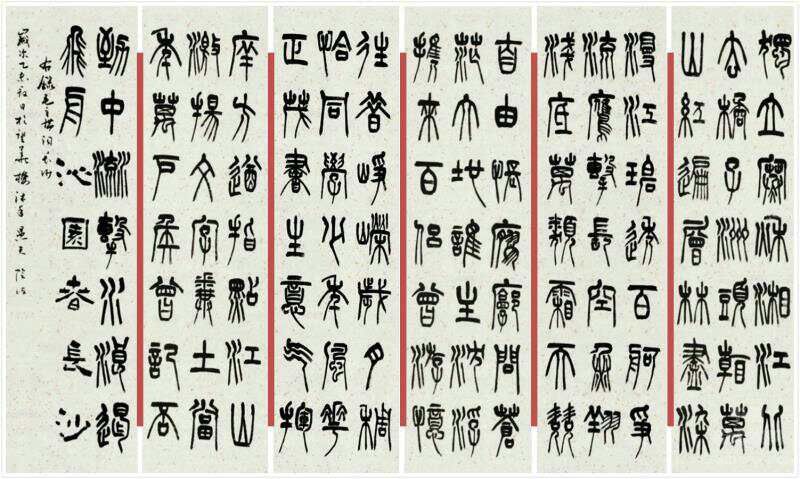 獨立寒秋湘江北
去橘子洲頭看萬
山紅遍層林盡染
漫江碧透百舸爭
流鷹擊長空魚翔
淺底萬類霜天競
自由悵寥廓問蒼
茫大地誰主沉浮
攜來百侶曾游憶
往昔崢嶸歲月稠
恰同學少年風華
正茂書生意气揮
斥方遒指點江山
激揚文字糞土當
年萬戶侯曾記否
到中流擊水浪遏
飛舟沁園春長沙
右錄毛主席詞長沙
歲次乙亥日於樓